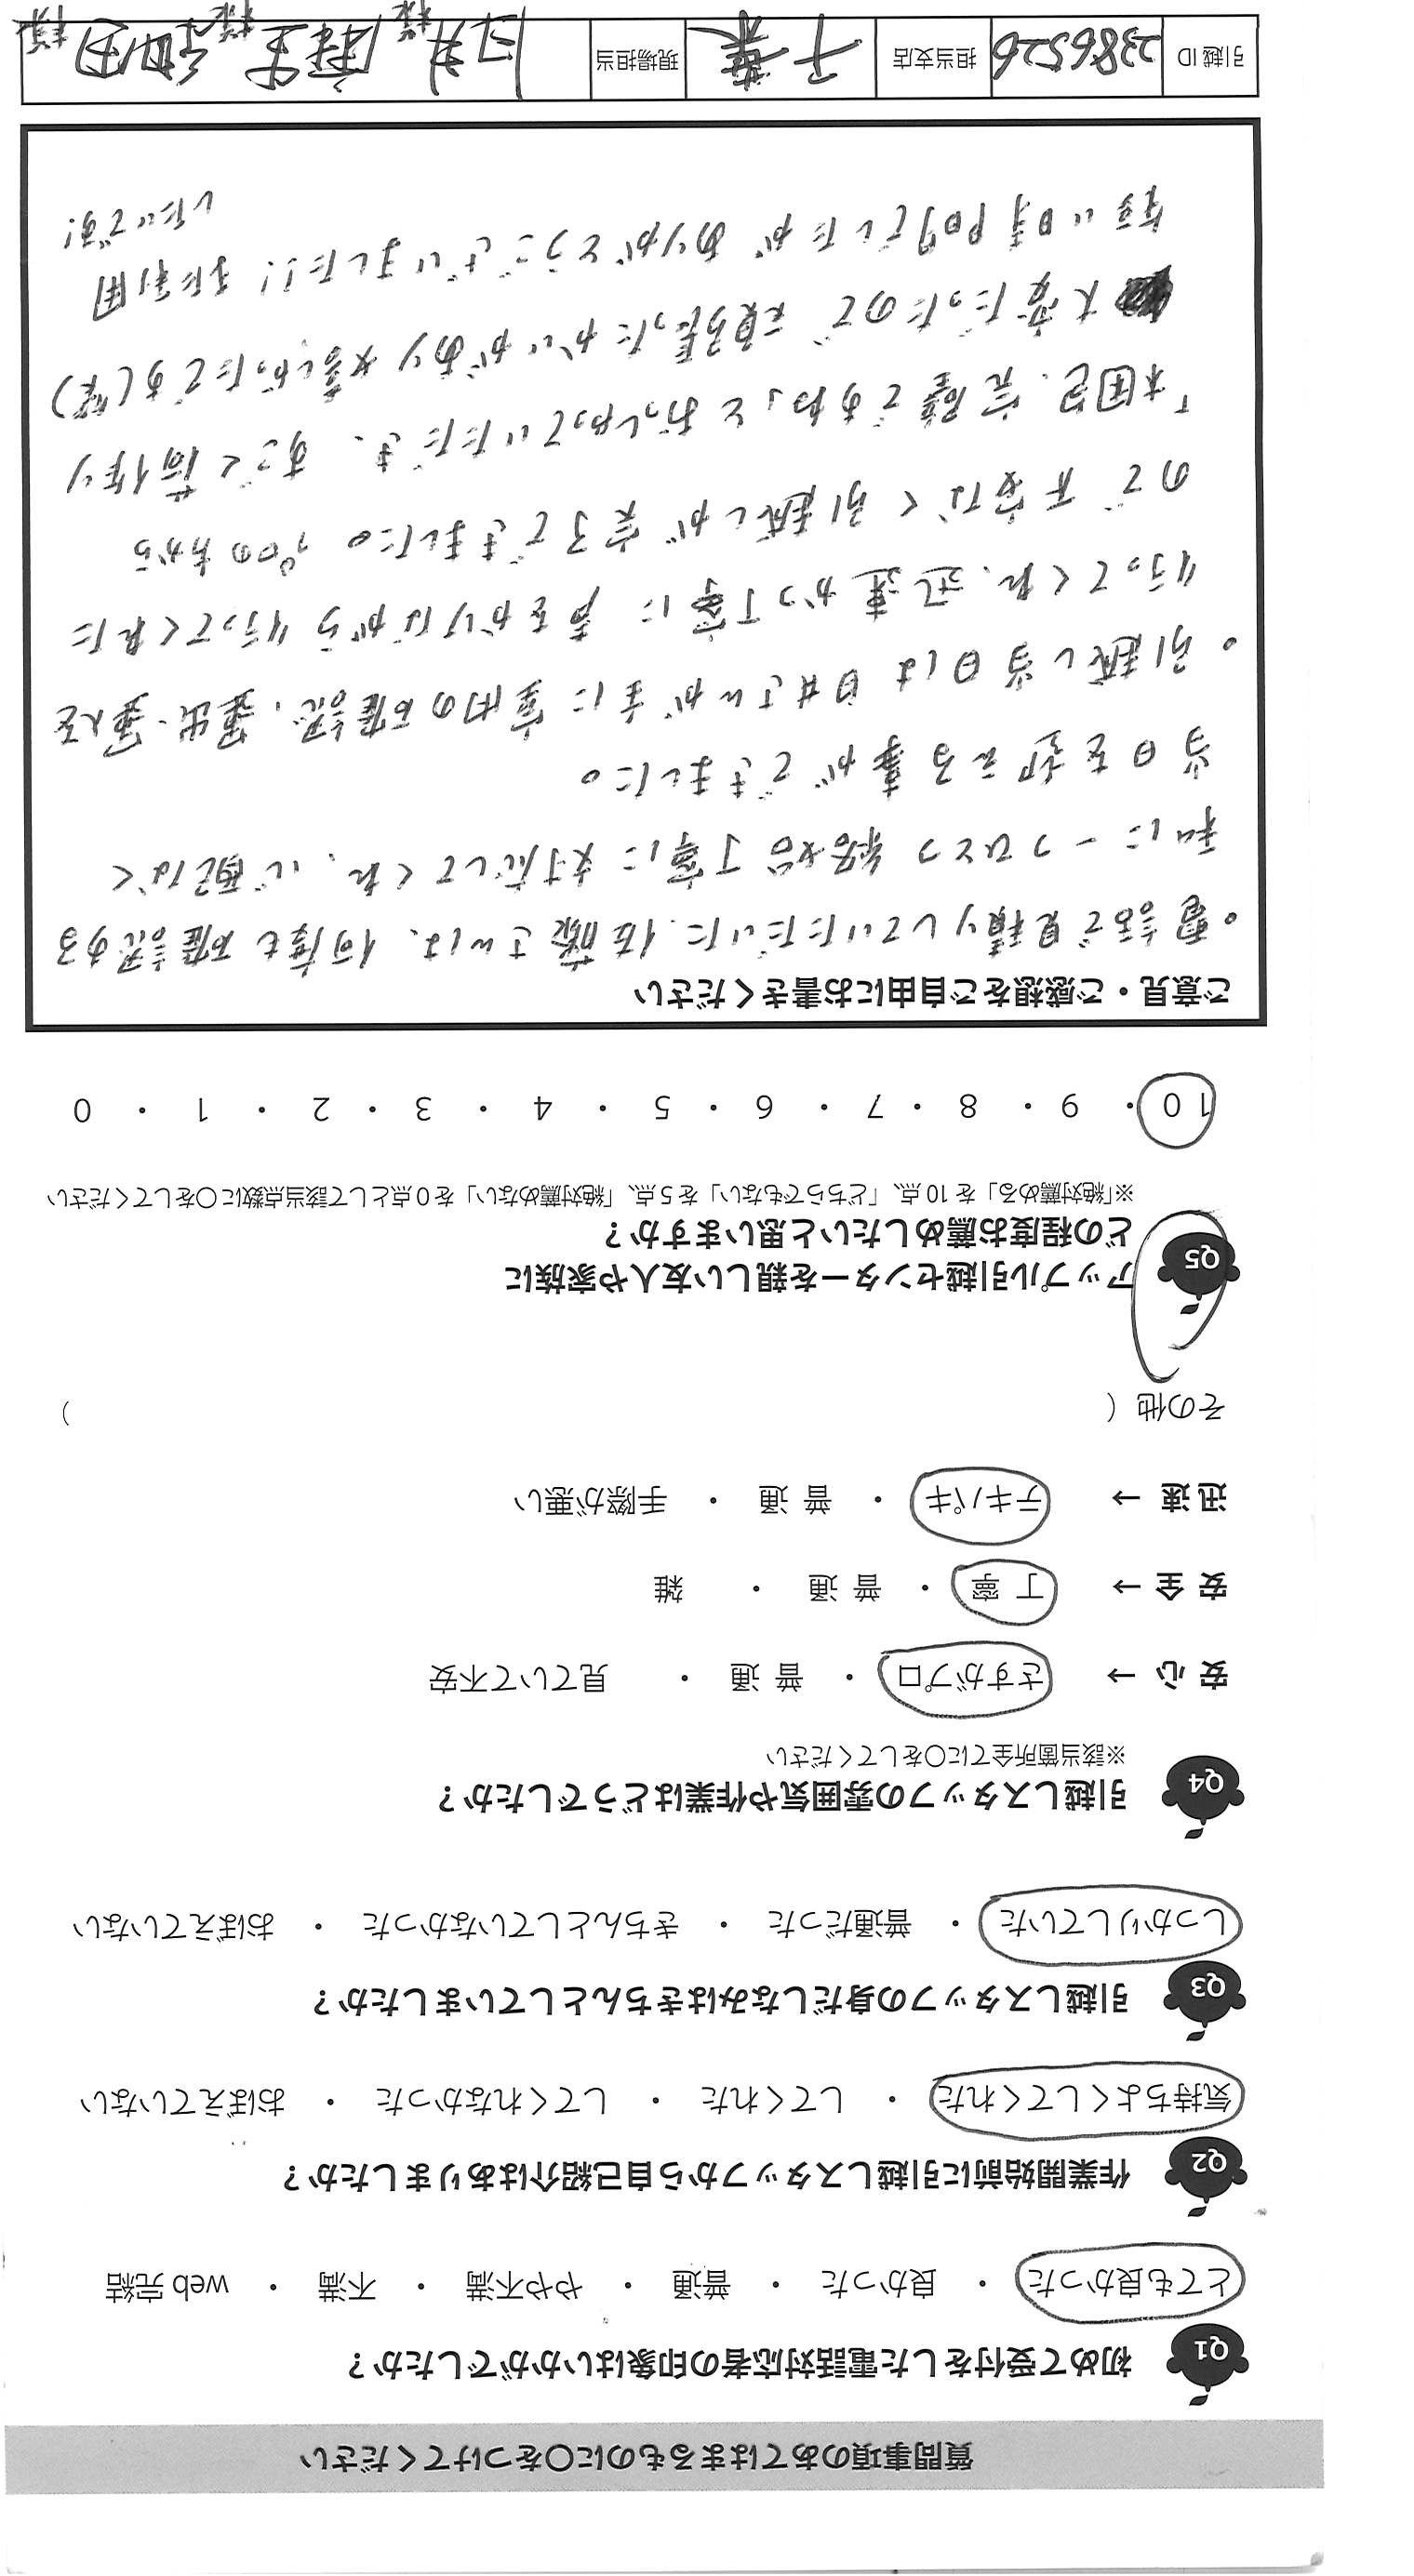 質問事項のあてはまるものに〇をつけてください
Q1 初めて受付をした電話対応者の印象はいかがでしたか？
とても良かった ・ 良かった ・ 普通 ・ やや不満 ・ 不満 ・ web 完結
Q2 作業開始前に引越しスタッフから自己紹介はありましたか？
気持ちよくしてくれた ・ してくれた ・ してくれなかった ・ おぼえていない
Q3 引越しスタッフの身だしなみはきちんとしていましたか？
しっかりしていた ・ 普通だった ・ きちんとしていなかった ・ おぼえていない
Q4 引越しスタッフの雰囲気や作業はどうでしたか？
※該当箇所全てに〇をしてください
安 心 → さすがプロ ・ 普 通 ・ 見ていて不安
安 全 → 丁 寧 ・ 普 通 ・ 雑
迅 速 → テキパキ ・ 普 通 ・ 手際が悪い
その他（ ）
Q5 アップル引越センターを親しい友人や家族に
どの程度お薦めしたいと思いますか？
※「絶対薦める」を 10 点、「どちらでもない」を 5 点、「絶対薦めない」を 0 点として該当点数に〇をしてください
10 ・ 9 ・ 8 ・ 7 ・ 6 ・ 5 ・ 4 ・ 3 ・ 2 ・ 1 ・ 0
ご意見・ご感想をご自由にお書きください
・電話で見積りしていただいた、佐藤さんは、何度も確認する
私に一つひとつ終始丁寧に対応してくれ、心配なく
当日を迎える事ができました。
・引越し当日は臼井さんが主に室内の確認、運出・運入を
行ってくれ、迅速かつ丁寧に声をかけながら行ってくれた
ので不安なく引越しが完了できました。プロの方から
「木固包、完璧ですね」とおっしゃっていただき、すごく荷作り
大変だったので頑張ったかいがあり嬉しかったです(笑)
短い時間でしたがありがとうございました!! また利用
したいです!
引越 ID 2386526 担当支店 千葉 現場担当 臼井様 様 細田様